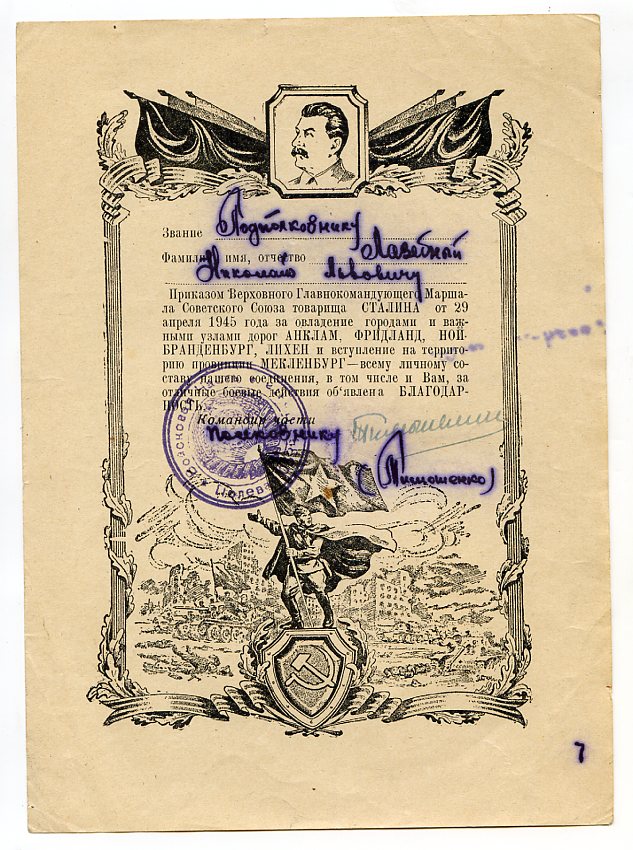 Звание Подполковнику
Фамилия, имя, отчество Лазебной
Николаю Львовичу
Приказом Верховного Главнокомандующего Марша-
ла Советского Союза товарища СТАЛИНА от 29
апреля 1945 года за овладение городами и важ-
ными узлами дорог АНКЛАМ, ФРИДЛАНД, НОЙ-
БРАНДЕНБУРГ, ЛИХЕН и вступление на террито-
рию провинции МЕКЛЕНБУРГ—всему личному со-
ставу нашего соединения, в том числе и Вам, за
отличные боевые действия об'явлена БЛАГОДАР-
НОСТЬ.
Командир части
Полковнику
(Тимошенко)
Полевая
7